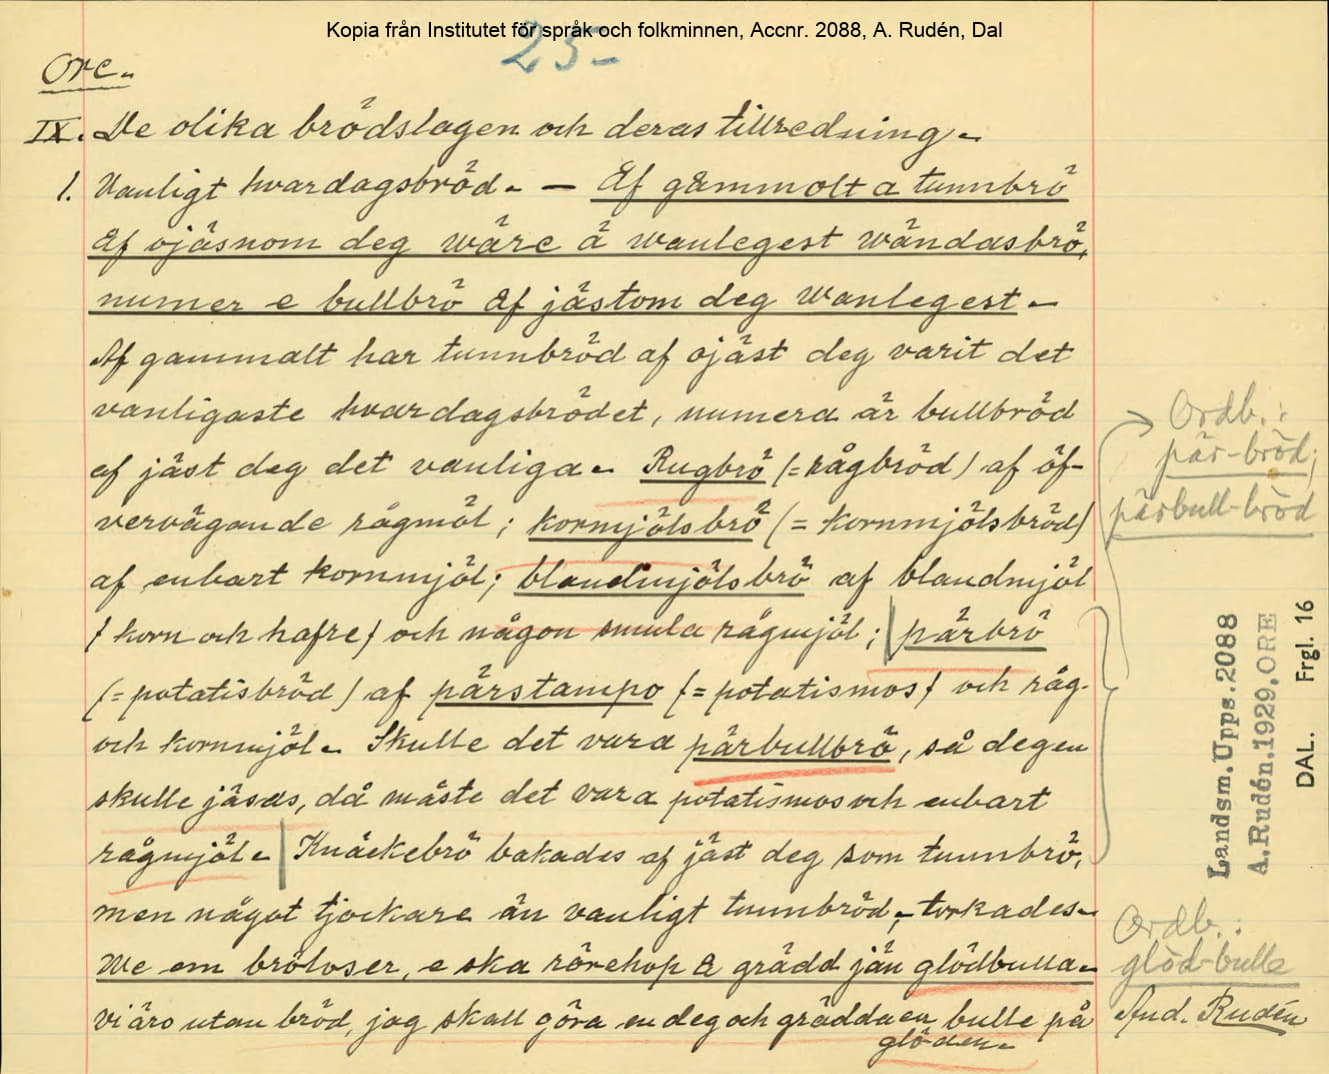 Kopia från Institutet för språk och folkminnen, Accnr. 2088, A. Rudén, Dal
25-
Ore.
IX. De olika brödslagen och deras tillredning.
1. Vanligt hvardagsbröd. — Af gammolt a tunnbrö
af ojäsnom deg wäre å wanlegest wändasbrö,
numer e bullbrö af jästom deg wanlegest.
Af gammalt har tunnbröd af ojäst deg varit det
vanligaste hvardagsbrödet, numera är bullbröd
af jäst deg det vanliga. Rugbrö (= rågbröd) af öf-
vervägande rågmöl; kornmjölsbrö (= kornmjölsbröd)
af enbart kornmjöl; blandmjölsbrö af blandmjöl
(korn och hafre) och någon smula rågmjöl; pärbrö
(= potatisbröd) af pärstampo (= potatismos) och råg-
och kornmjöl. Skulle det vara pärbullbrö, så degen
skulle jäsas, då måste det vara potatismos och enbart
rågmjöl. Knäckebrö bakades af jäst deg som tunnbrö,
men något tjockare än vanligt tunnbröd, torkades.
We em bröloser, e ska rörehop & grädd jän glödbulla.
vi äro utan bröd, jag skall göra en deg och grädda en bulle på
glöden.
Ordb.:
pär-bröd;
pärbull-bröd
Landsm. Upps. 2088
A. Rudén. 1929. ORE
DAL. Frgl. 16
Ordb.:
glöd-bulle
And. Rudén